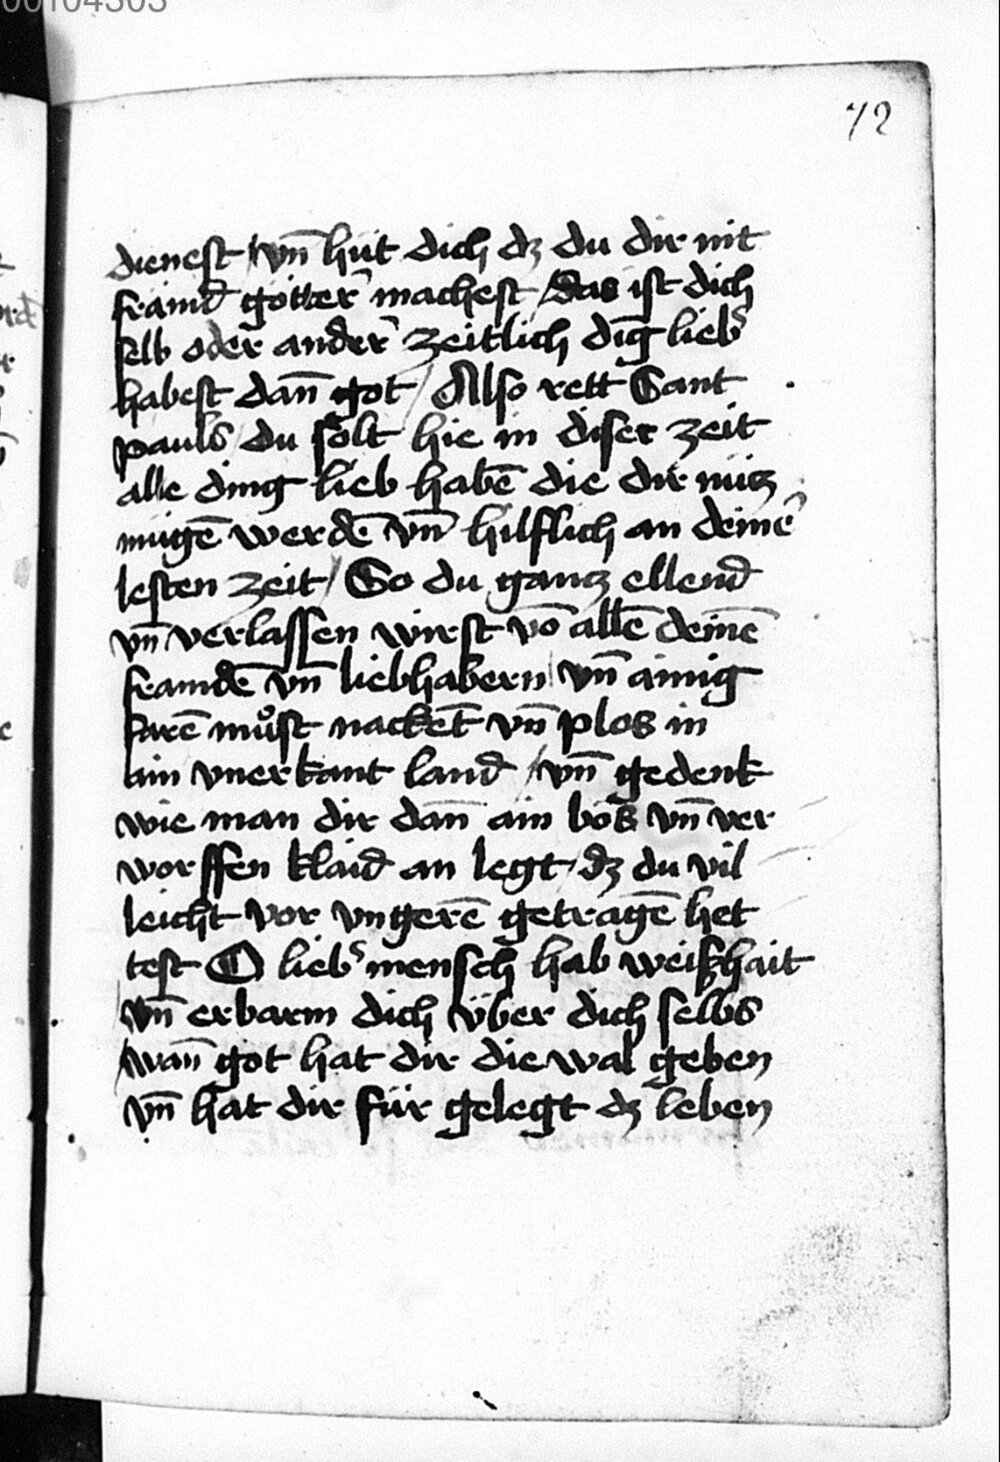 00104303
72
dienest / vn̄ hüt dich dz du dir nit
främd götter̄ machest / Das ist dich
selb oder̄ ander̄ zeitlich dīg lieb͛
habest dan̄ got / Also rett Sant
pauls du solt hie in diser zeit
alle ding lieb habē die dir nücz
mügē werdē vn̄ hilflich an deinē
lesten zeit / So du gancz ellend
vn̄ verlassen wirst vō allē deinē
framdē vn̄ liebhabern / vn̄ ainig
farē můst nacket̄ vn̄ plos in
ain vnerkant land / vn̄ gedenk
wie man dir dan̄ ain bös vn̄ ver
worffen klaid an legt / dz du vil
leicht vor vngerē getragē het
test O lieb͛ mensch hab weißhait
vn̄ erbarm dich über dich selbs
wan̄ got hat dir die wal geben
vn̄ hat dir für gelegt dz leben